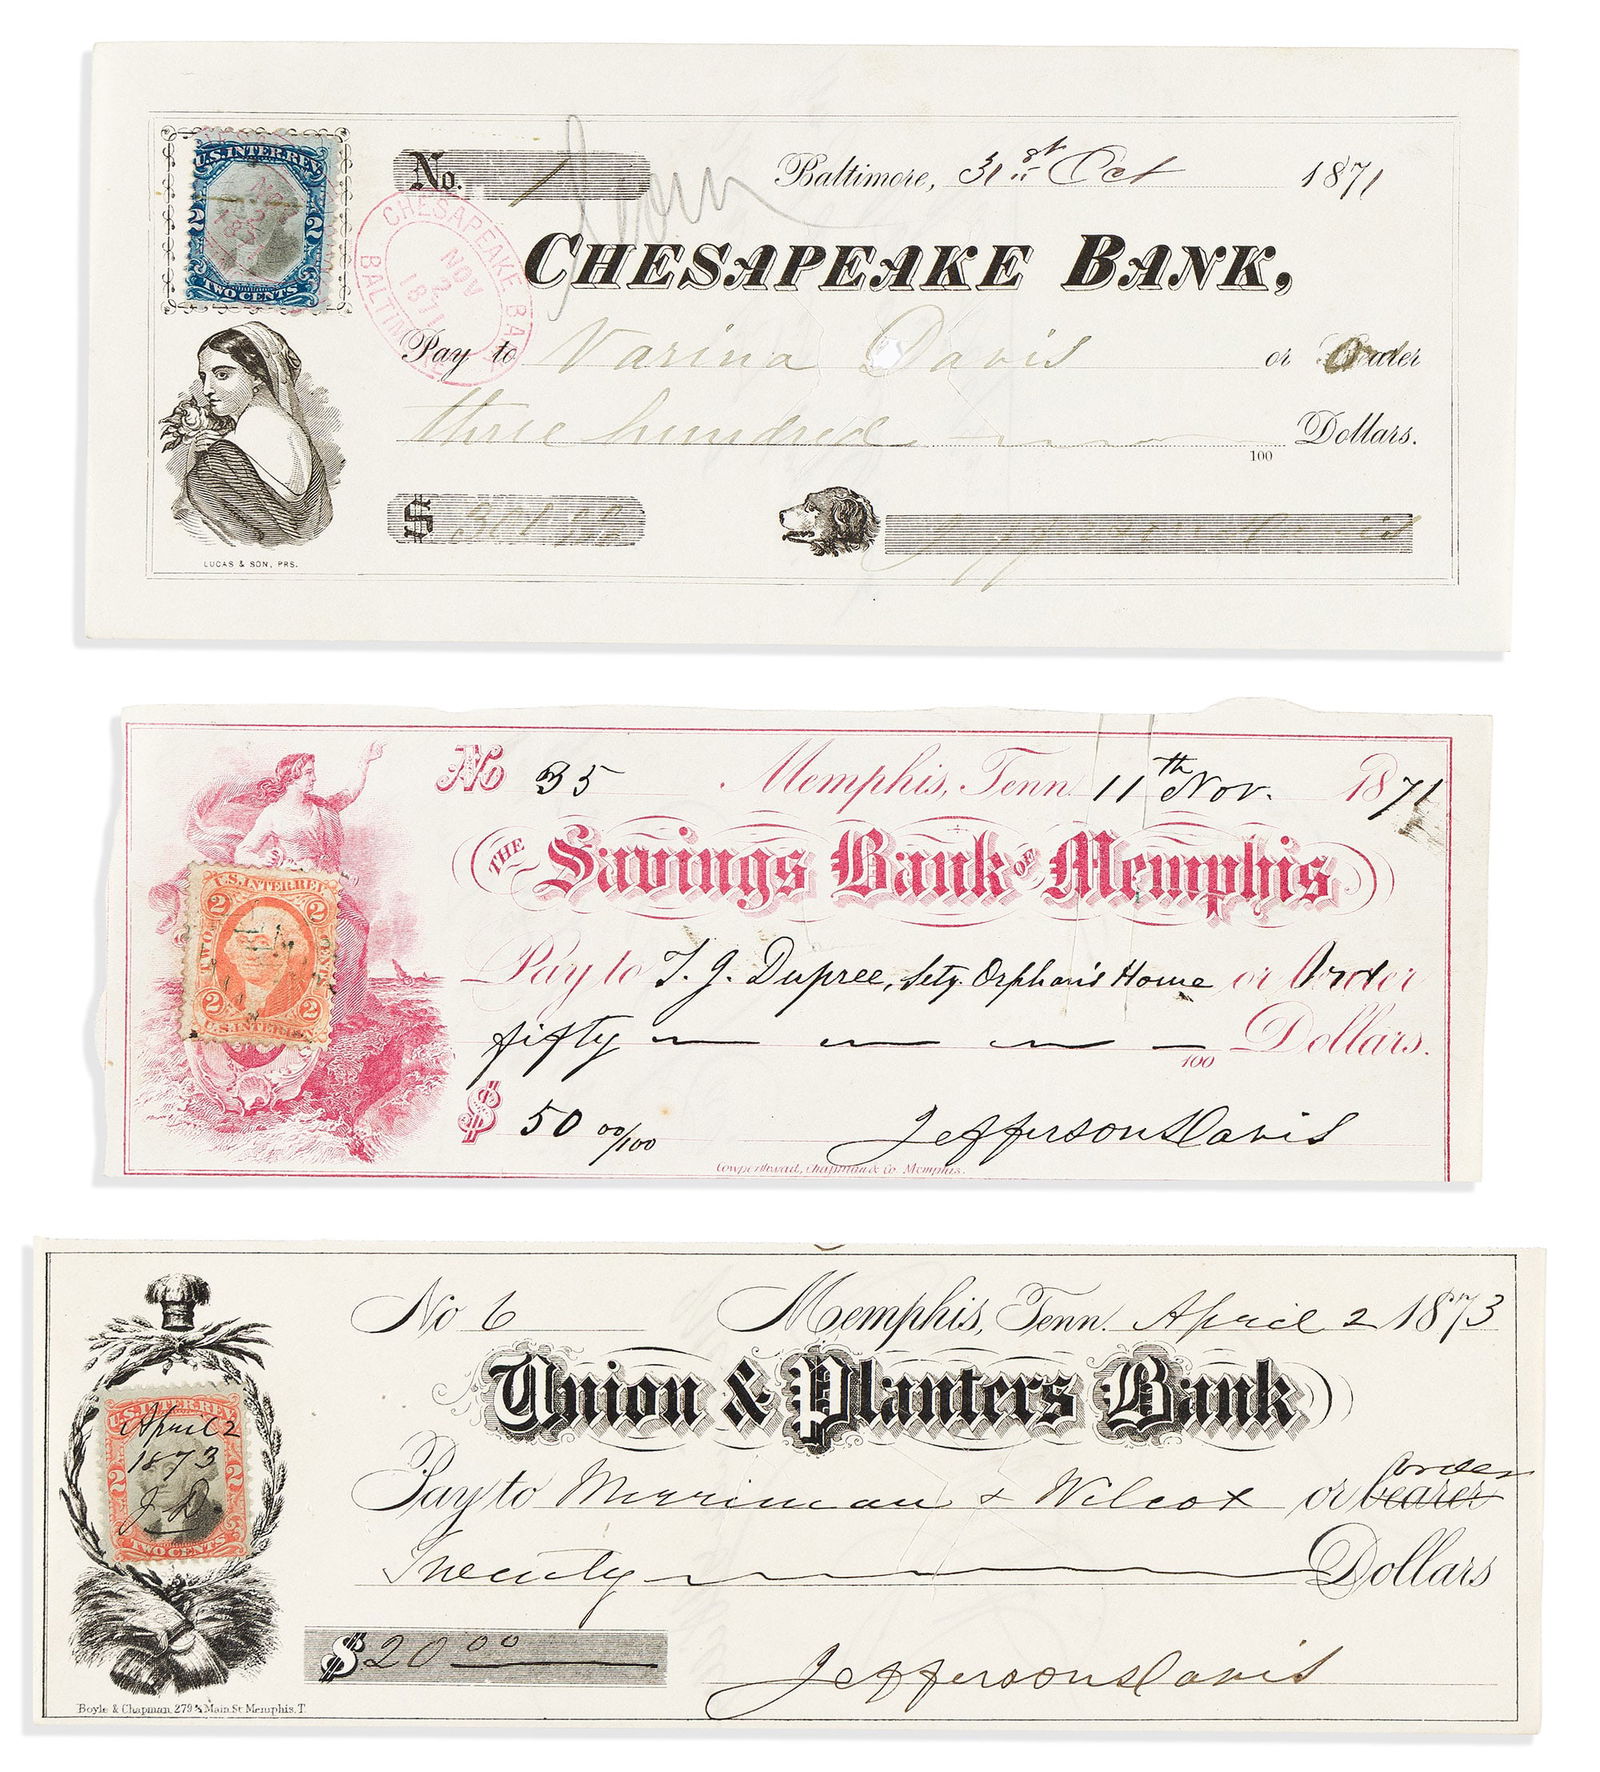 U.S. INTER. REV.
2 2
TWO CENTS
No. 1
Baltimore, 31st Oct 1871
CHESAPEAKE BANK
NOV 2 1871
BALTIMORE
CHESAPEAKE BANK,
Pay to Varina Davis or Order
three hundred Dollars.
100
$
Jefferson Davis
LUCAS & SON, PRS.
No 35 Memphis, Tenn. 11th Nov. 1871
THE Savings Bank OF Memphis
U.S. INTER. REV.
2 2
TWO CENTS
2 2
U.S. INTER. REV.
Pay to T. J. Dupree, Sety. Orphan's Home or Order
fifty Dollars.
100
$ 50 00/100 Jefferson Davis
Cowperthwad, Chapman & Co. Memphis.
No 6 Memphis, Tenn. April 2 1873
Union & Planters Bank
U.S. INTER. REV.
April 2
1873
2 2
J D
TWO CENTS
order
Pay to Merriman & Wilcox or bearer
Twenty Dollars
$ 20 00
Jefferson Davis
Boyle & Chapman, 279½ Main St Memphis, T.